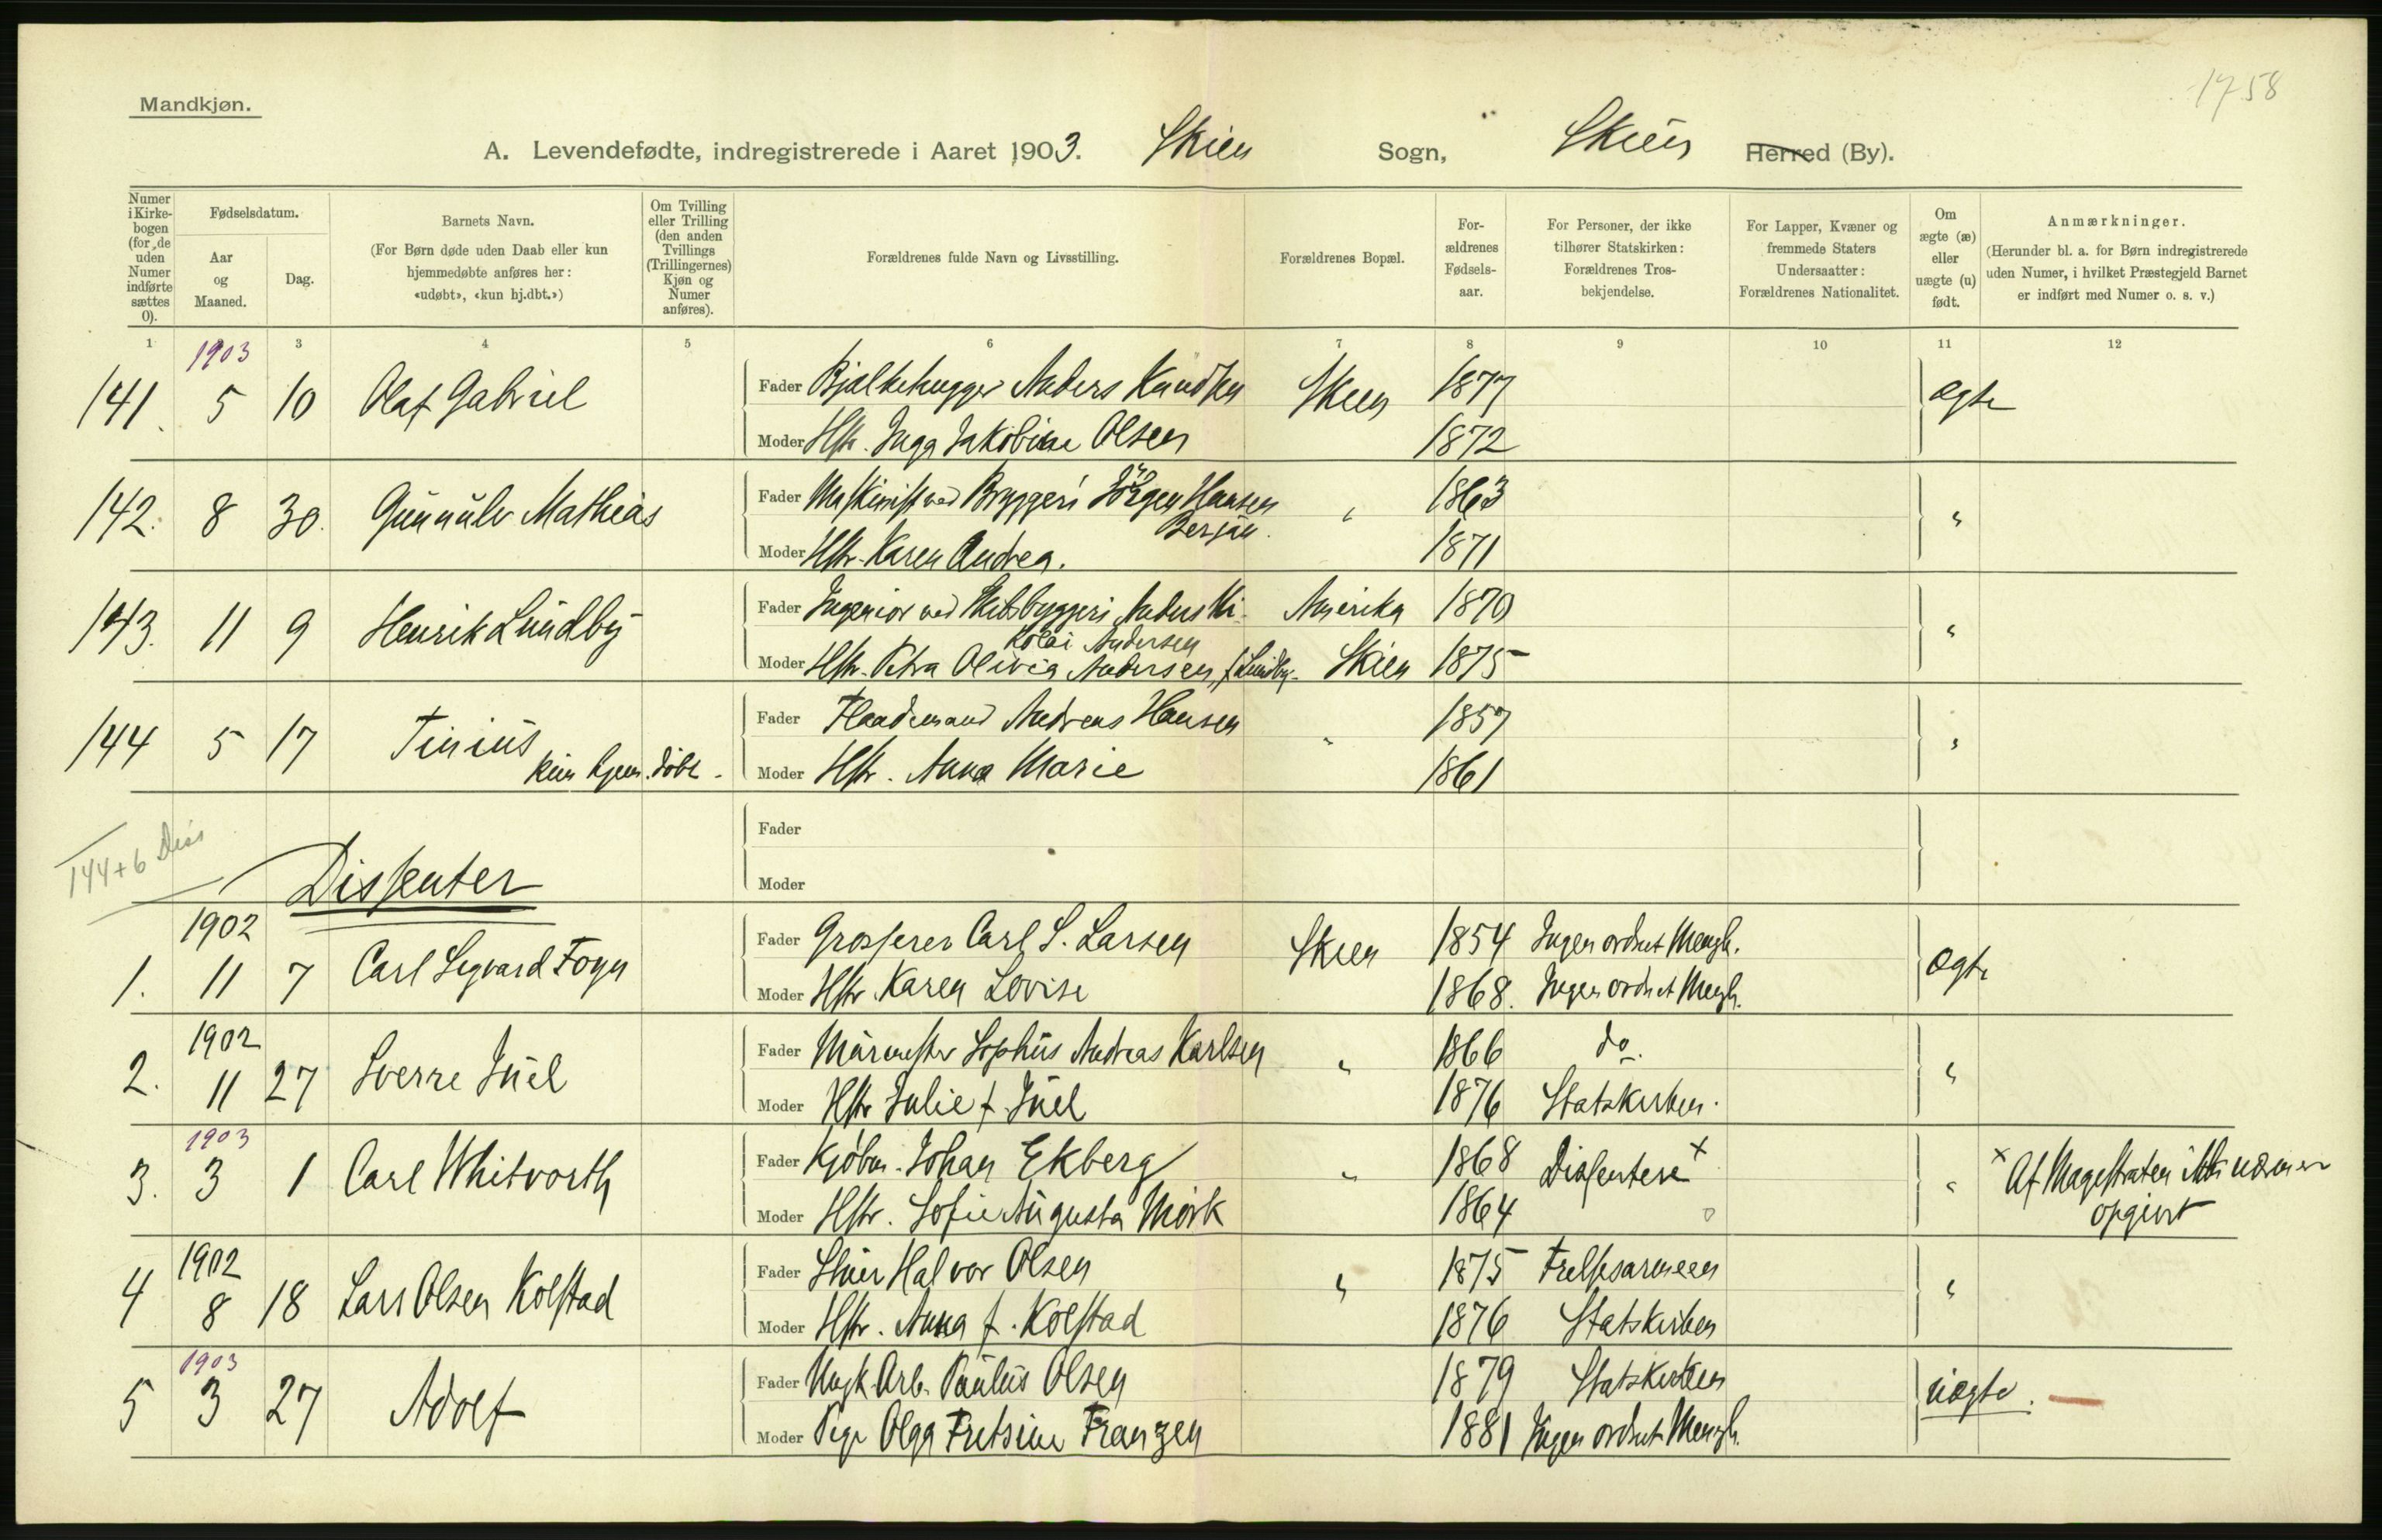 1758
Mandkjøn.
A. Levendefødte, indregistrerede i Aaret 1903. Skien Sogn, Skien Herred (By).
Numer i Kirkebogen (for de uden Numer indførte sættes 0).
Fødselsdatum.
Aar og Maaned.
Dag.
Barnets Navn.
(For Børn døde uden Daab eller kun hjemmedøbte anføres her: «udøbt», «kun hj.dbt.»)
Om Tvilling eller Trilling (den anden Tvillings (Trillingernes) Kjøn og Numer anføres).
Forældrenes fulde Navn og Livsstilling.
Forældrenes Bopæl.
Forældrenes Fødselsaar.
For Personer, der ikke tilhører Statskirken: Forældrenes Trosbekjendelse.
For Lapper, Kvæner og fremmede Staters Undersaatter: Forældrenes Nationalitet.
Om ægte (æ) eller uægte (u) født.
Anmærkninger.
(Herunder bl. a. for Børn indregistrerede uden Numer, i hvilket Præstegjeld Barnet er indført med Numer o. s. v.)
1 3 4 5 6 7 8 9 10 11 12
1903
141. 5 10 Olaf Gabriel Fader Bjælkehugger Anders Knudsen Skien 1877 ægte
Moder Hstr. Inga Jakobine Olsen 1872
142. 8 30. Gunnulv Mathias Fader Maskinist ved Bryggeri Jörgen Hansen " 1863 "
Bersjan.
Moder Hstr. Karen Andrea. 1871
143. 11 9 Henrik Lundby Fader Ingeniør ved Skibsbyggeri Anders Ni- Amerika 1870 "
kolai Andersen
Moder Hstr. Petra Olivia Andersen, f Lundby- Skien 1875
144 5 17 Tinius Fader Flaademand Andreas Hansen " 1857 "
kun hjem. döbt - Moder Hstr. Anna Marie 1861
144+6 Diss
Fader
Dissenter
Moder
1902
1. 11 7 Carl Sigvard Foyn Fader Grosserer Carl S. Larsen Skien 1854 Ingen ordnet Mengh. ægte
Moder Hstr. Karen Lovise 1868. Ingen ordnet Mengh.
1902
2. 11 27 Sverre Juel Fader Murmester Sophus Andreas Karlsen " 1866 do. "
Moder Hstr Julie f. Juel 1876 Statskirken.
1903
3. 3 1 Carl Whitvorth Fader Kjøbm. Johan Ekberg " 1868 Dissentere x " x Af Magistraten ikke nærmere
opgivet
Moder Hstr. Sofie Augusta Mörk 1864
1902
4 8 18 Lars Olsen Kolstad Fader Stuer Halvor Olsen " 1875 Frelsesarmeen "
Moder Hstr. Anna f. Kolstad 1876 Statskirken
1903
5 3 27 Adolf Fader Ungk. Arb. Paulus Olsen 1879 Statskirken uægte.
Moder Pige Olga Fretsine Franzen 1881 Ingen ordnet Mengh.